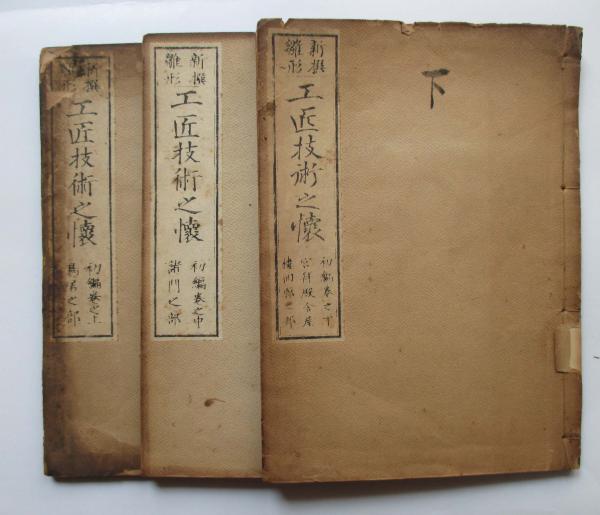 下
新撰
雛形
工匠技術之懐
初編巻之下
宮拝殿舎屋
之部
新撰
雛形
工匠技術之懐
初編巻之中
諸門之部
新撰
雛形
工匠技術之懐
初編巻之上
鳥居之部